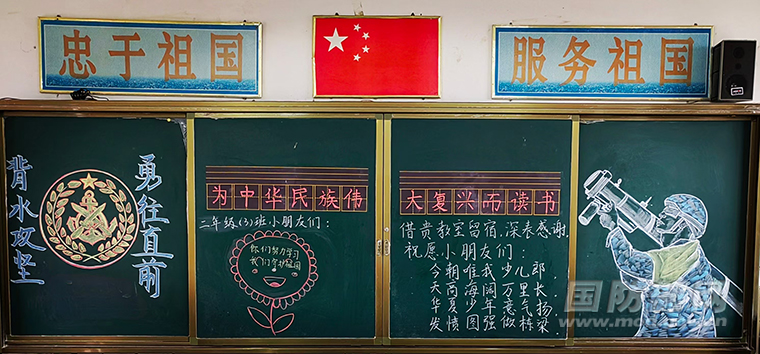 忠于祖国
服务祖国
背水攻坚
勇往直前
为中华民族伟
大复兴而读书
二年级(3)班小朋友们:
你们努力学习
我们守护祖国
借贵教室留宿,深表感谢.
祝愿小朋友们:
今朝唯我少儿郎,
天高海阔万里长,
华夏少年意气扬
发愤图强做栋梁.
国防部网